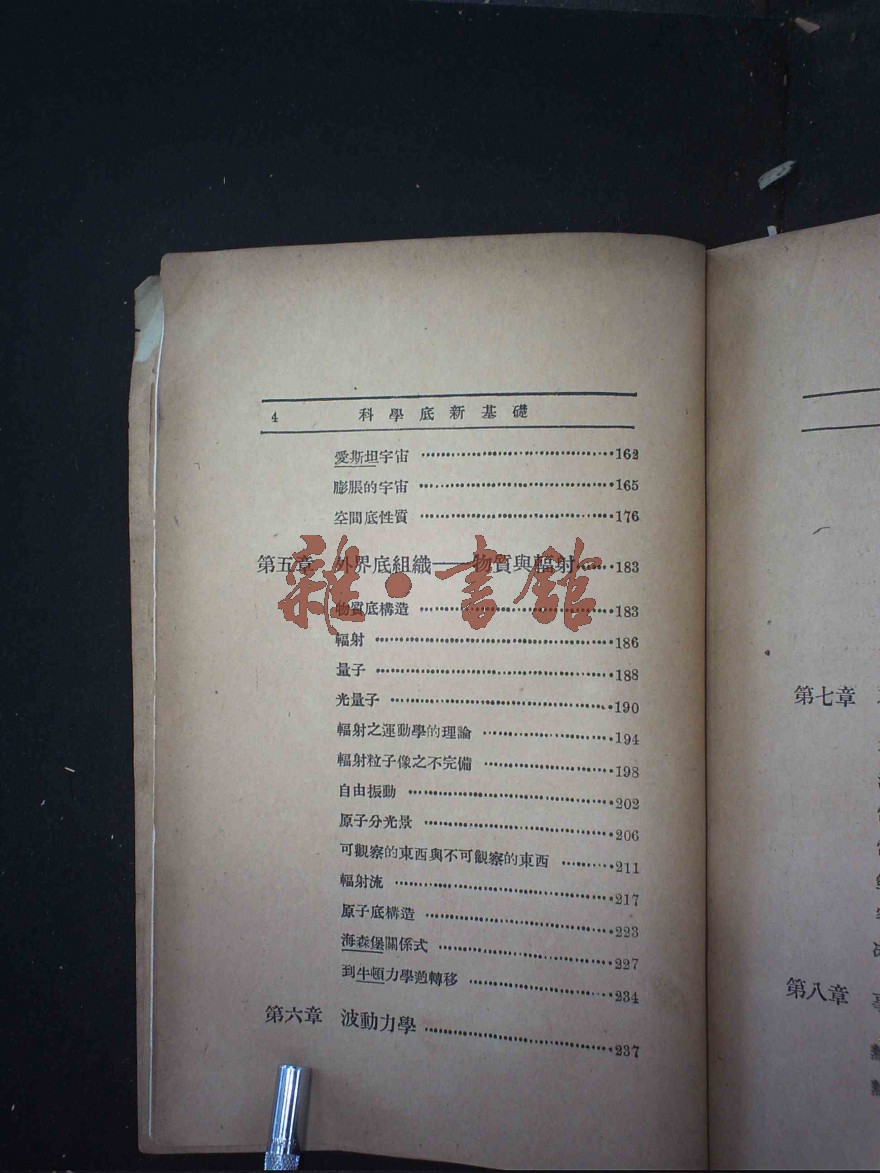 4 科學底新基礎
愛斯坦宇宙 ……162
膨脹的宇宙 ……165
空間底性質 ……176
第五章 外界底組織——物質與輻射……183
雜·書館
物質底構造 ……183
輻射 ……186
量子 ……188
光量子 ……190
輻射之運動學的理論 ……194
輻射粒子像之不完備 ……198
自由振動 ……202
原子分光景 ……206
可觀察的東西與不可觀察的東西 ……211
輻射流 ……217
原子底構造 ……223
海森堡關係式 ……227
到牛頓力學過轉移 ……234
第六章 波動力學 ……237
第七章
第八章